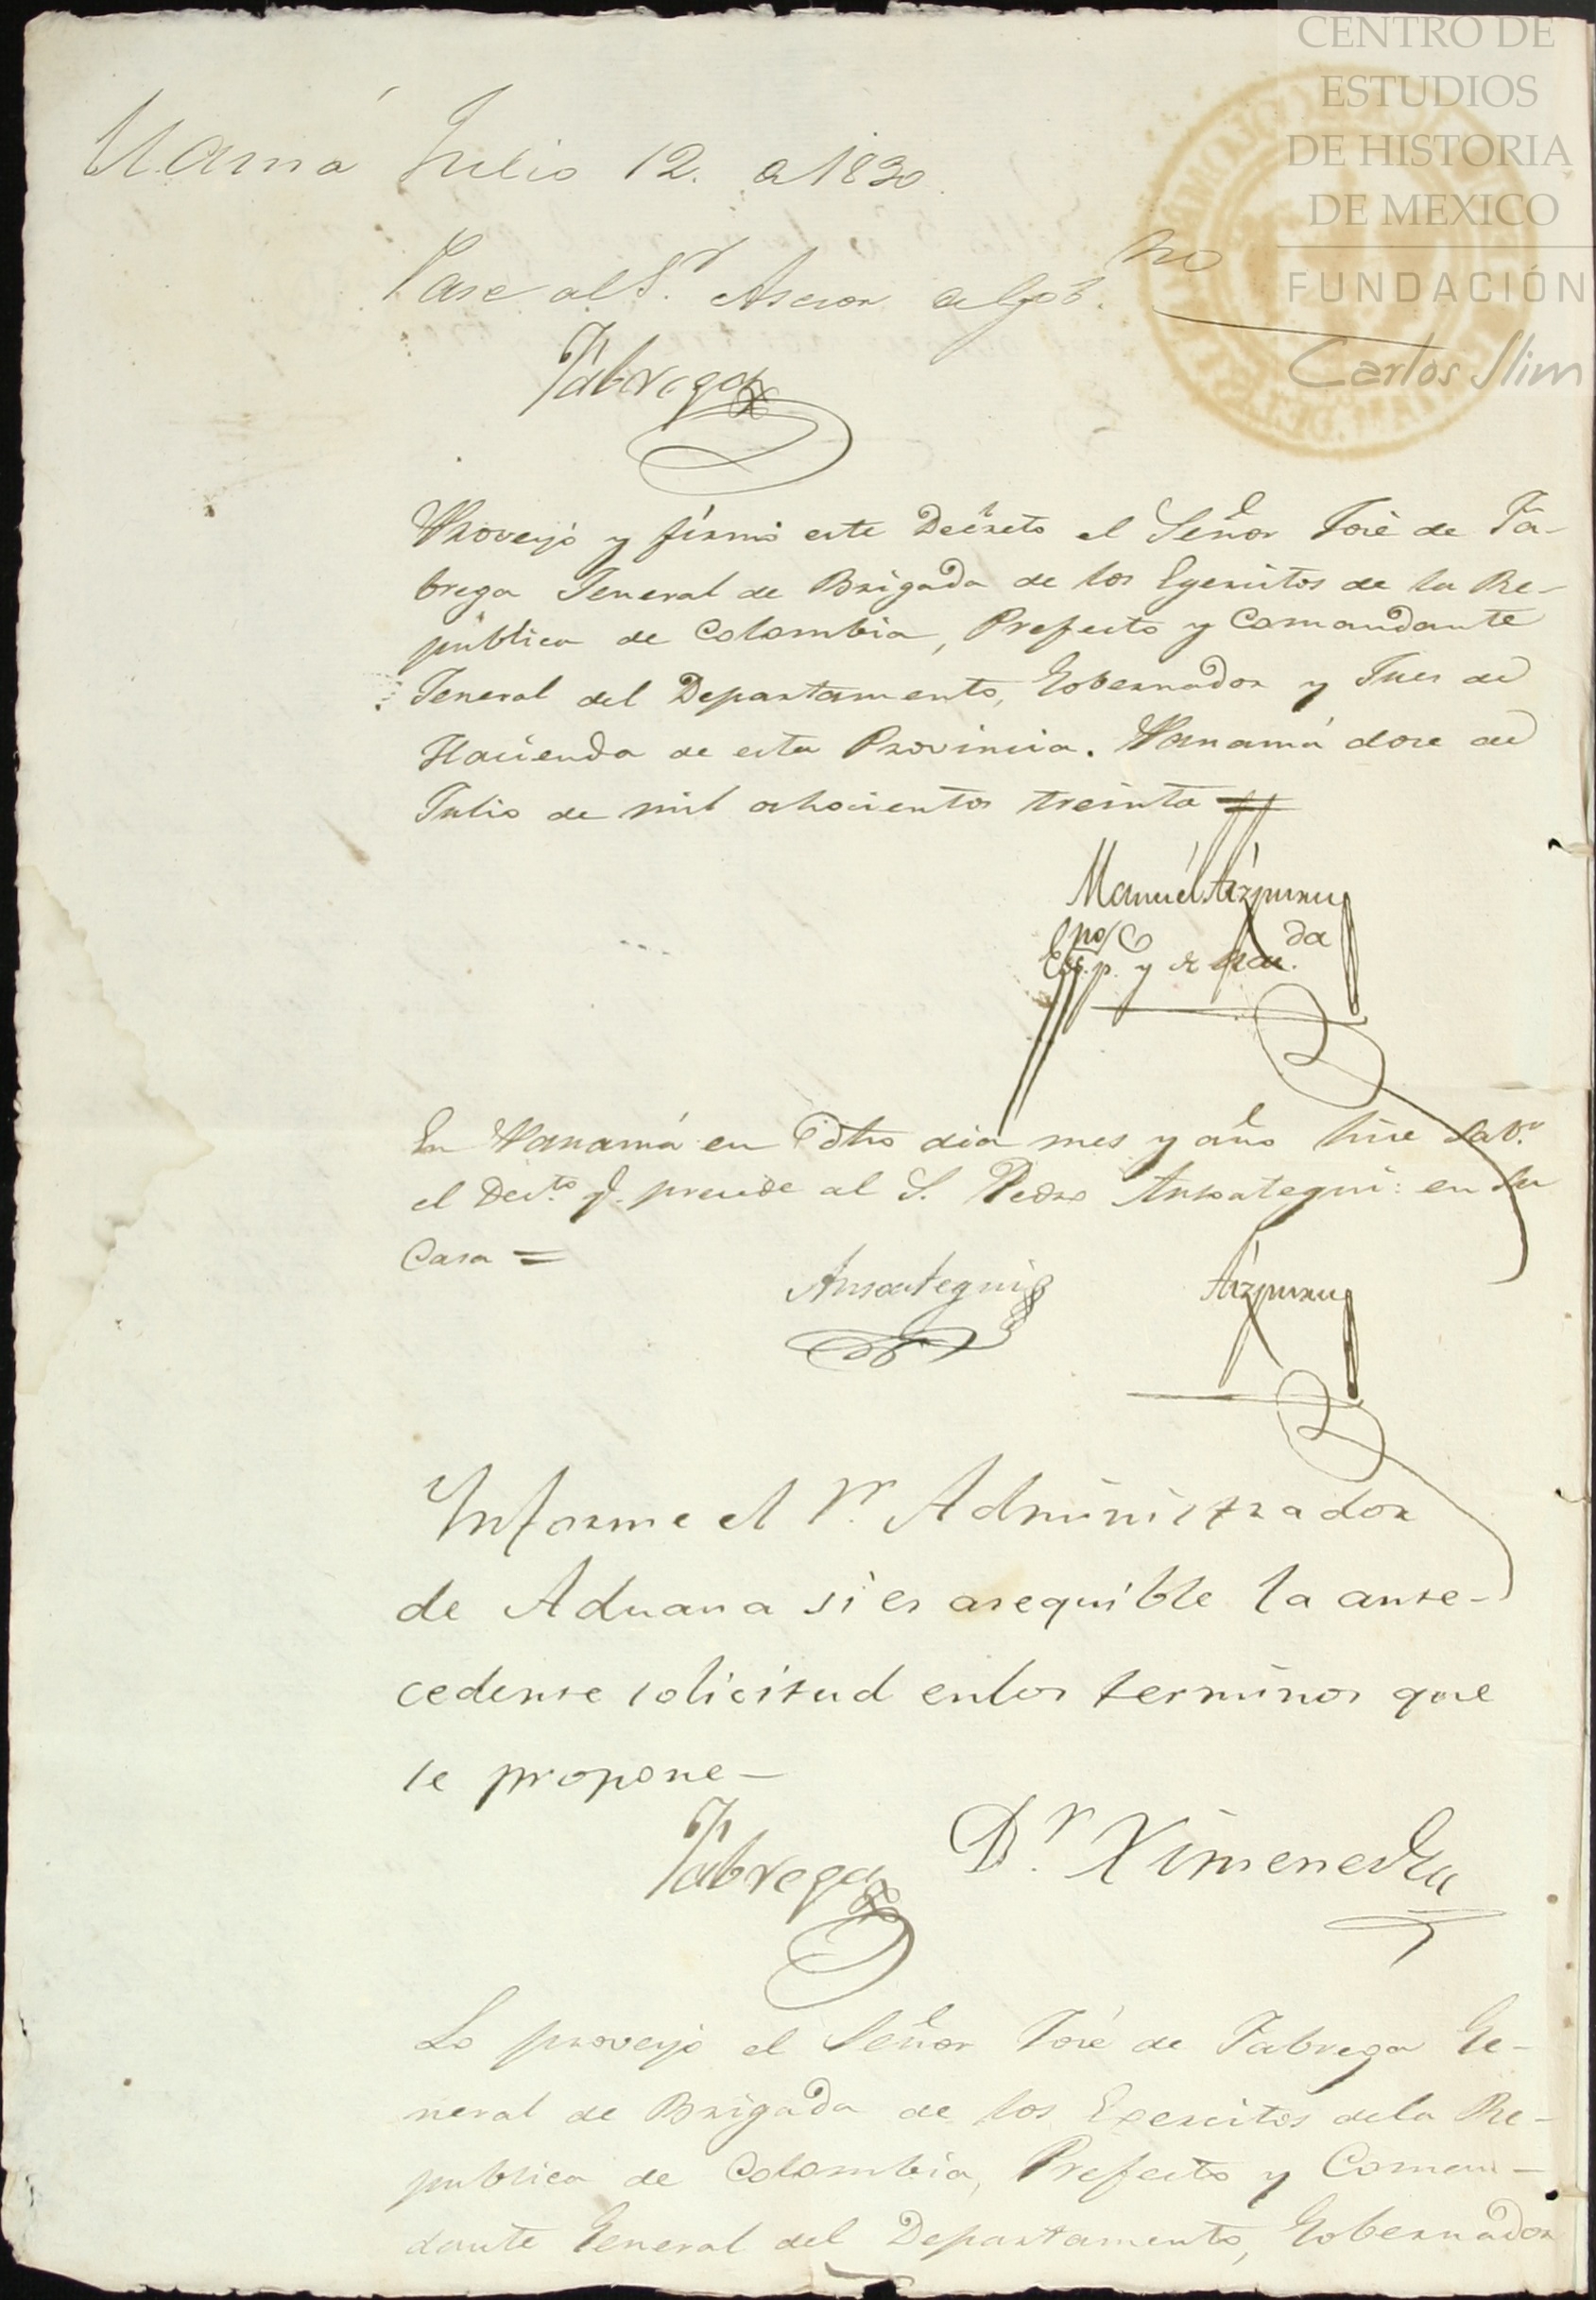 CENTRO DE
ESTUDIOS
DE HISTORIA
DE MEXICO
FUNDACIÓN
Carlos Slim
Julio 12. de 1830.
Pase al S.r Asesor del gob.no
Fábrega
Proveyó y firmó este Decreto el Señor José de Fá-
brega Jeneral de Brigada de los Egercitos de la Re-
pública de Colombia, Prefecto y Comandante
Jeneral del Departamento, Gobernador y Jues de
Hacienda de esta Provincia. Panamá dose de
Julio de mil ochocientos treinta =
Manuel Aizpuru
Es.no p.co y de Hac.da
En Panamá en dho dia mes y año hise sab.r
el Dec.to q.e precede al S. Pedro Ansoategui: en su
Casa =
Ansoategui
Aizpuru
Informe el Sr. Administrador
de Aduana si es asequible la ante-
cedente solicitud en los terminos que
se propone—
Fábrega
D.r Ximenes
Lo proveyó el Señor José de Fabrega Ge-
neral de Brigada de los Exercitos dela Re-
publica de Colombia, Prefecto y Coman-
dante General del Departamento, Gobernador